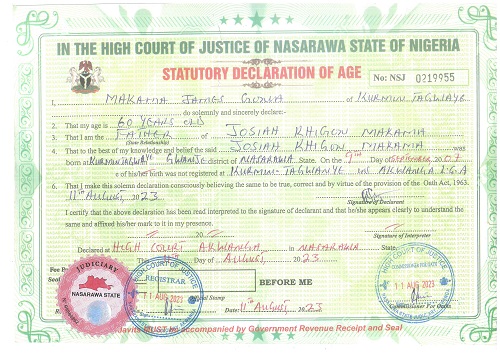 IN THE HIGH COURT OF JUSTICE OF NASARAWA STATE OF NIGERIA
STATUTORY DECLARATION OF AGE
No: NSJ 0219955
1. MAKAMA JAMES of KURMIN TAGWAYE
do solemnly and sincerely declare:-
2. That my age is 60 YEARS OLD
3. That I am the FATHER of JOSIAH KHIGON MAKAMA
(State Relationship)
4. That to the best of my knowledge and belief the said JOSIAH KHIGON MAKAMA was
born at KURMIN TAGWAYE GWANJE district of NASARAWA State. On the 9TH Day of SEPTEMBER 2007
5. e of his/her birth was not registered at KURMIN TAGWAYE AKWANGA L.G.A
6. That I make this solemn declaration consciously believing the same to be true, correct and by virtue of the provision of the Oath Act, 1963.
11th August, 2023
Signature of Declarant
I certify that the above declaration has been read interpreted to the signature of declarant and that he/she appears clearly to understand the
same and affixed his/her mark to it in my presence.
20
Signature of Interpreter
Declared at HIGH COURT AKWANGA in NASARAWA State.
The 11th Day of AUGUST, 2023.
Fee
Seal
BEFORE ME
Official Stamp
Date 11th August, 2023
Commissioner For Oaths
JUDICIARY
NASARAWA STATE
HIGH COURT OF JUSTICE
REGISTRAR
11 AUG 2023
HIGH COURT OF JUSTICE
11 AUG 2023
davits MUST be accompanied by Government Revenue Receipt and Seal